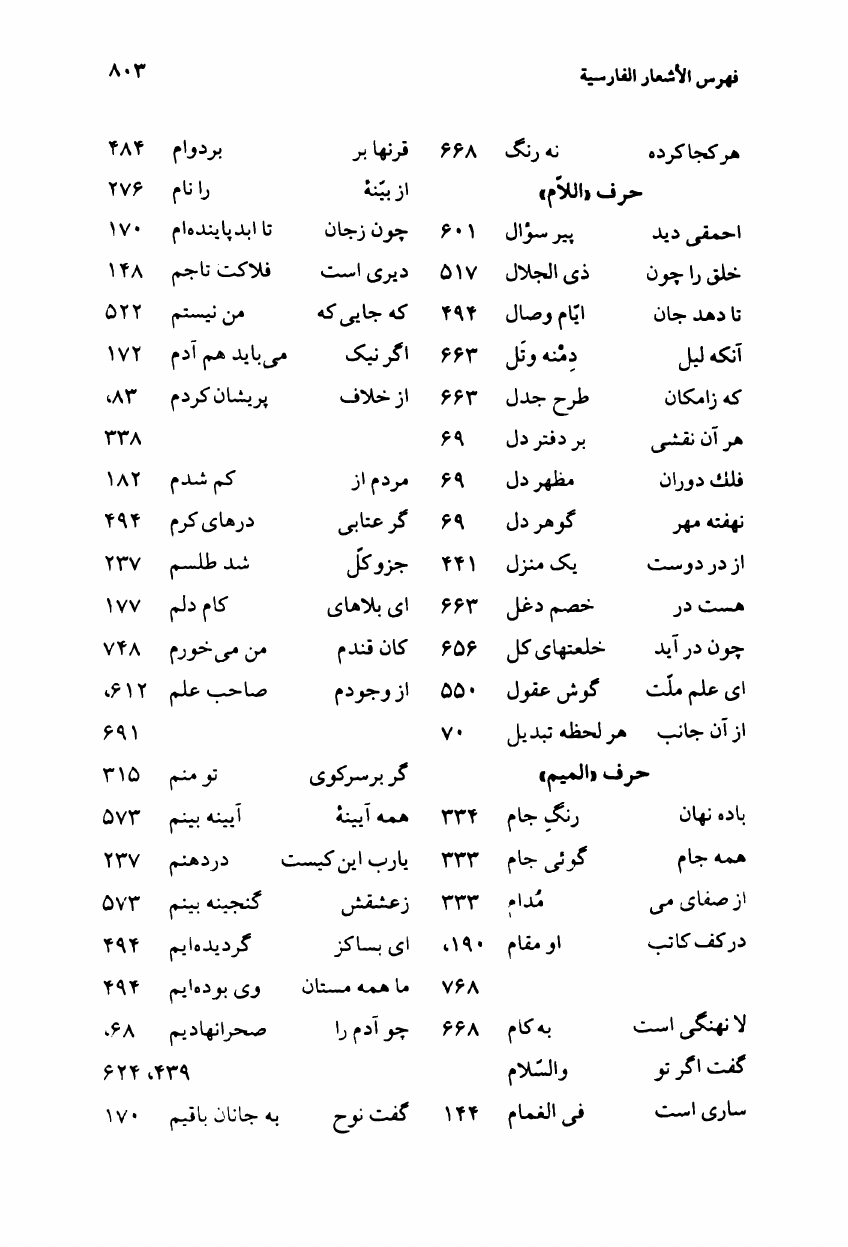 فهرس الأشعار الفارسية ۸۰۳
هر کجا کرده نه رنگ ۶۶۸
حرف «اللاّم»
احمقی دید پیر سؤال ۶۰۱
خلق را چون ذی الجلال ۵۱۷
تا دهد جان ایّام وصال ۴۹۴
آنکه لیل دِمْنه وتَل ۶۶۳
که زامکان طرح جدل ۶۶۳
هر آن نقشی بر دفتر دل ۶۹
فلك دوران مظهر دل ۶۹
نهفته مهر گوهر دل ۶۹
از در دوست یک منزل ۴۴۱
هست در خصم دغل ۶۶۳
چون در آید خلعتهای کل ۶۵۶
ای علم ملّت گوش عقول ۵۵۰
از آن جانب هر لحظه تبدیل ۷۰
حرف «المیم»
باده نهان رنگِ جام ۳۳۴
همه جام گوئی جام ۳۳۳
از صفای می مُدام ۳۳۳
در کف کاتب او مقام ۱۹۰،
۷۶۸
لا نهنگی است به کام ۶۶۸
گفت اگر تو والسّلام
ساری است فی الغمام ۱۴۴
قرنها بر بردوام ۴۸۴
از بیّنهٔ را نام ۲۷۶
چون زجان تا ابد پاینده‌ام ۱۷۰
دیری است فلاکت تاجم ۱۴۸
که جایی که من نیستم ۵۲۲
اگر نیک می‌باید هم آدم ۱۷۲
از خلاف پریشان کردم ۸۳،
۳۳۸
مردم از کم شدم ۱۸۲
گر عتابی درهای کرم ۴۹۴
جزو کلّ شد طلسم ۲۳۷
ای بلاهای کام دلم ۱۷۷
کان قندم من می‌خورم ۷۴۸
از وجودم صاحب علم ۶۱۲،
۶۹۱
گر برسرکوی تو منم ۳۱۵
همه آیینهٔ آیینه بینم ۵۷۳
یارب این کیست دردهنم ۲۳۷
زعشقش گنجینه بینم ۵۷۳
ای بساکز گردیده‌ایم ۴۹۴
ما همه مستان وی بوده‌ایم ۴۹۴
چو آدم را صحرانهادیم ۶۸،
۴۳۹، ۶۲۴
گفت نوح به جانان باقیم ۱۷۰